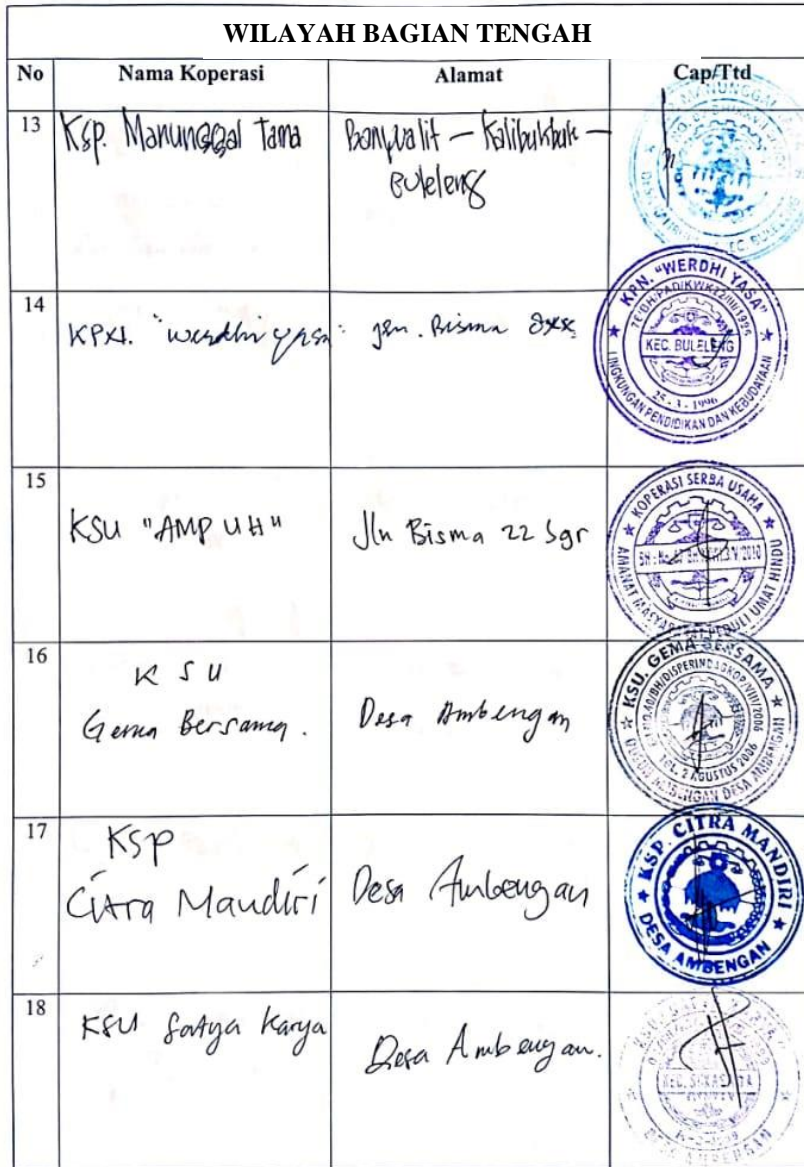 WILAYAH BAGIAN TENGAH
No Nama Koperasi Alamat Cap/Ttd
13 Ksp. Manunggal Tama Banyualit – Kalibukbuk –
Buleleng
14 KPN. "Werdhi Yasa" jln. Bisma
KPN. "WERDHI YASA"
KEC. BULELENG
25 - 3 - 1996
LINGKUNGAN PENDIDIKAN DAN KEBUDAYAAN
15 KSU "AMPUH" Jln Bisma 22 Sgr
KOPERASI SERBA USAHA
AMANAT MASYARAKAT PEDULI UMAT HINDU
16 KSU
Gema Bersama. Desa Ambengan
KSU. GEMA BERSAMA
TGL. 2 AGUSTUS 2006
DUSUN AMBENGAN DESA AMBENGAN
17 KSP
Citra Mandiri Desa Ambengan
KSP. CITRA MANDIRI
DESA AMBENGAN
18 KSU Satya Karya Desa Ambengan.
DESA AMBENGAN